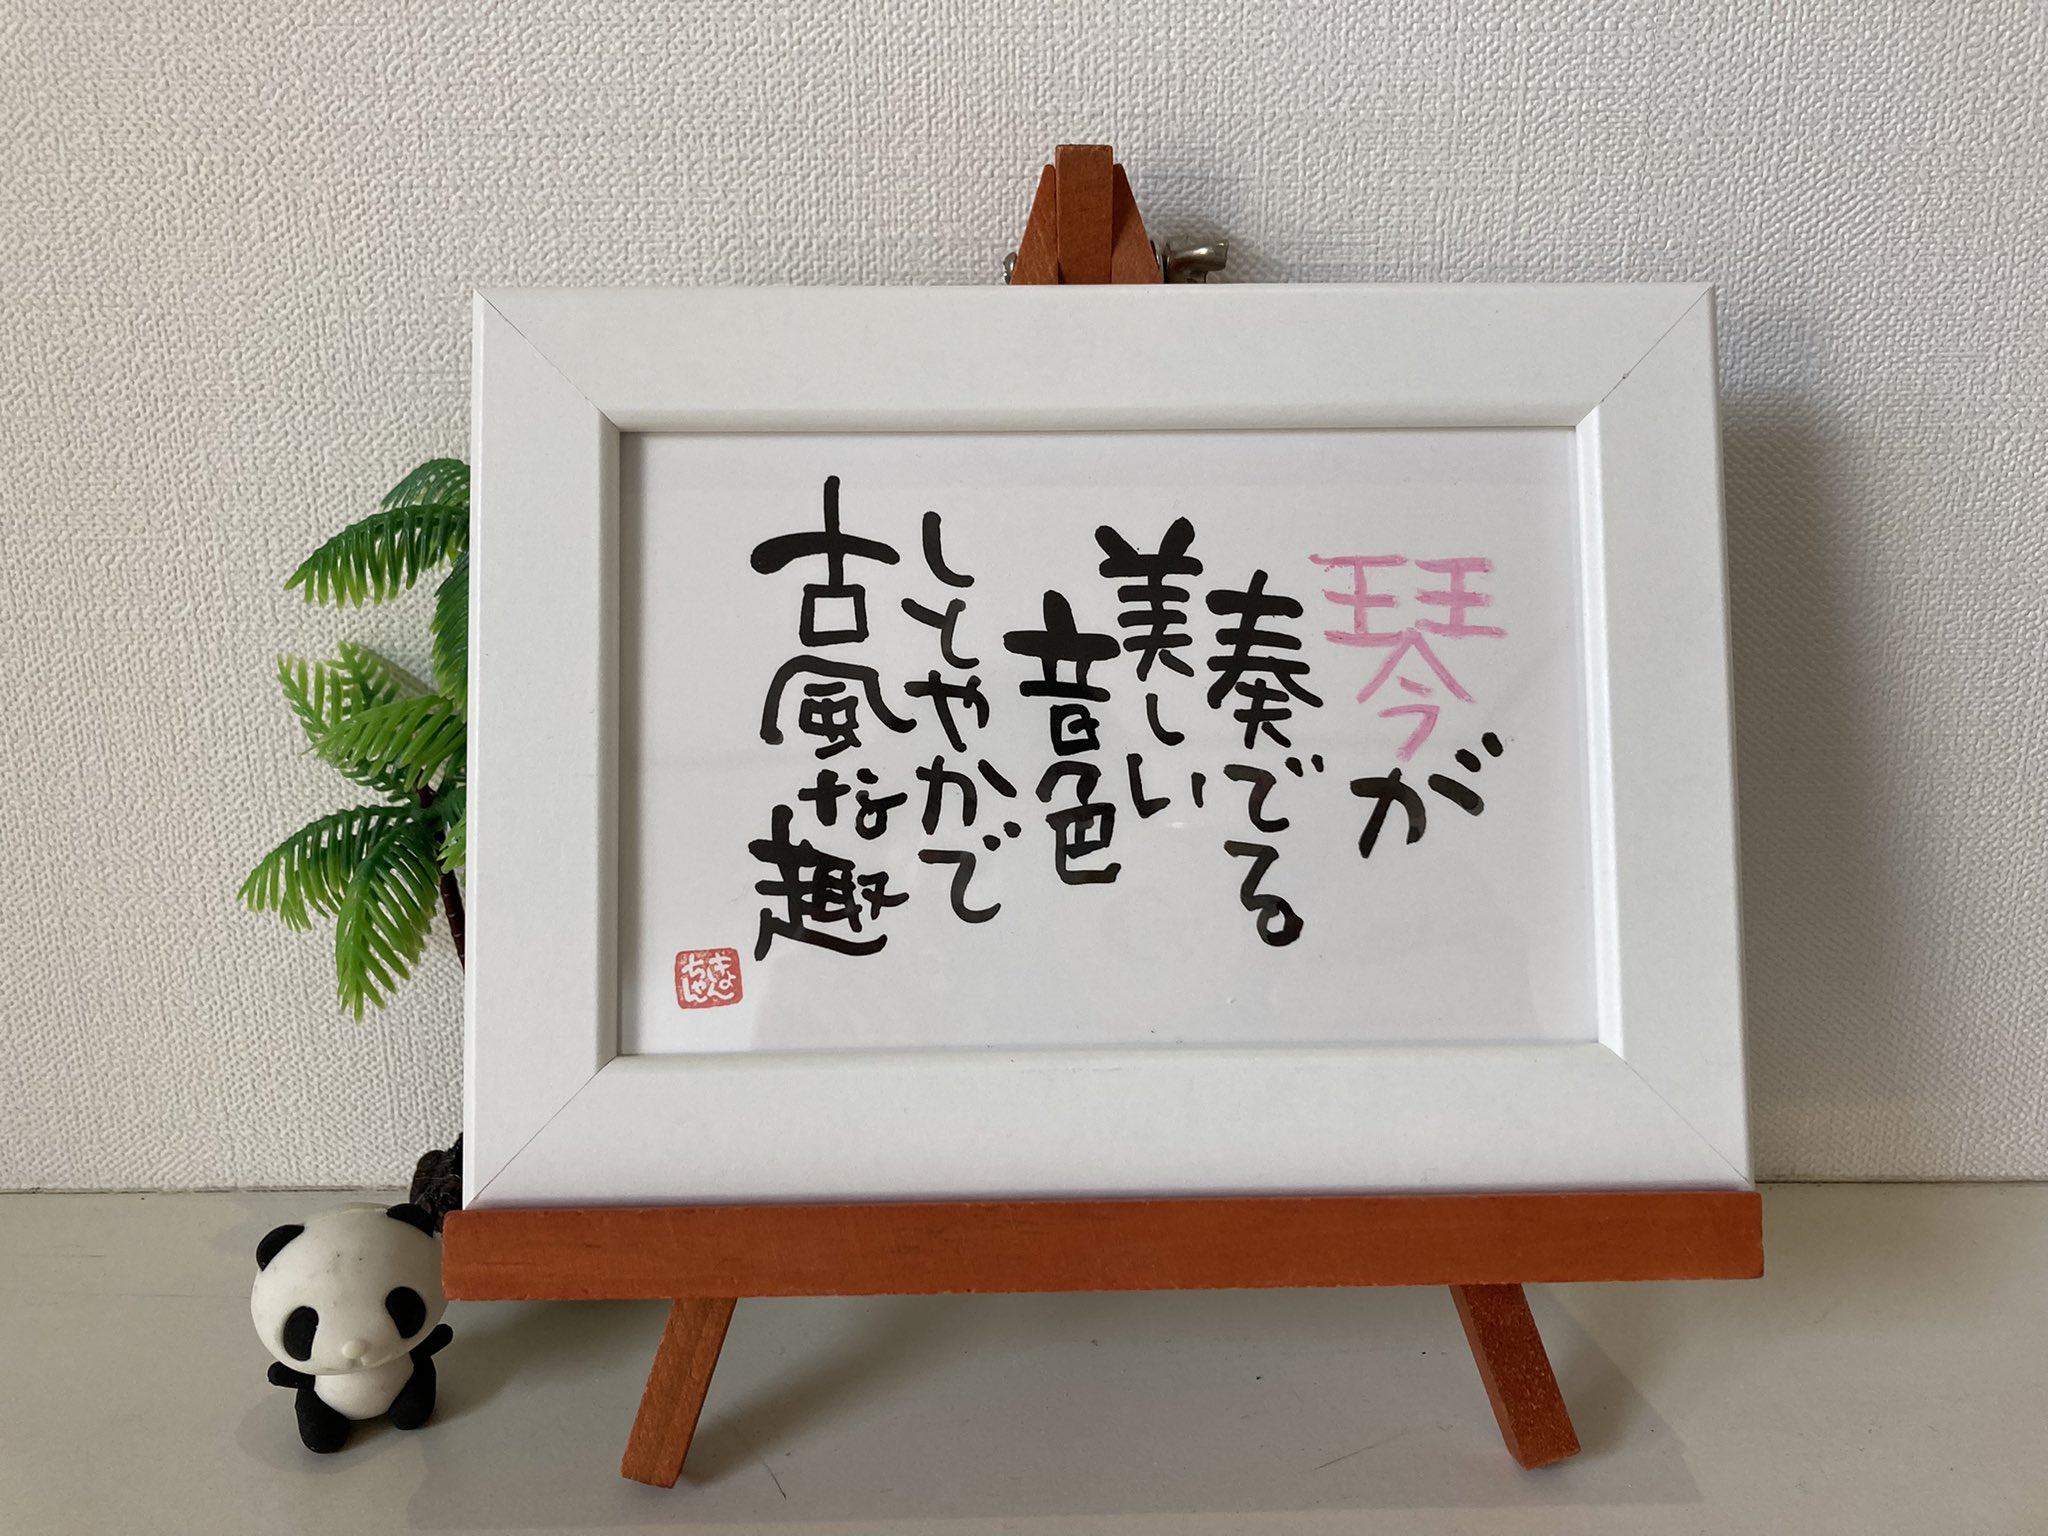 琴が
奏でる
美しい
音色
しとやかで
古風な趣
きょん
ちゃん